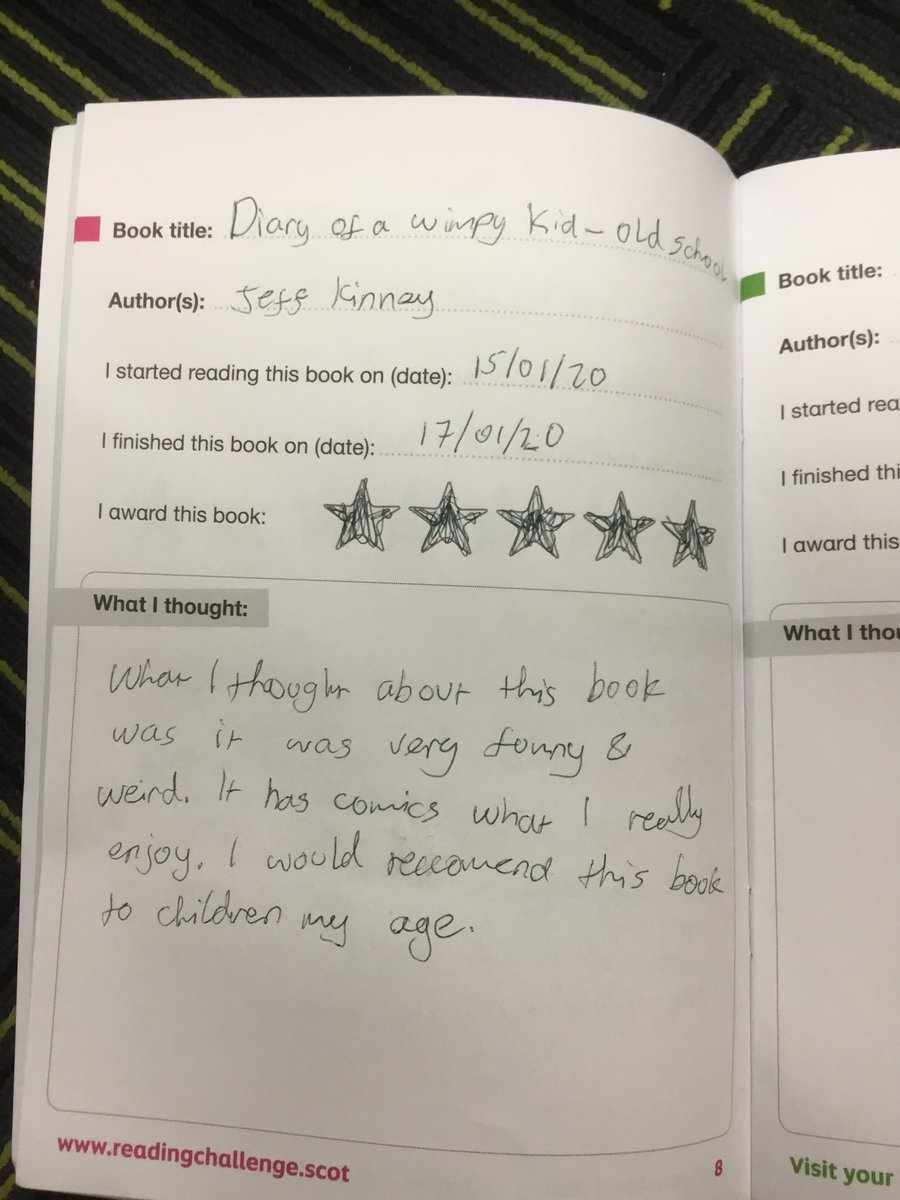 Book title: Diary of a wimpy Kid - old school
Author(s): Jeff Kinney
I started reading this book on (date): 15/01/20
I finished this book on (date): 17/01/20
I award this book:
What I thought:
What I thought about this book
was it was very funny &
weird. It has comics what I really
enjoy. I would reccomend this book
to children my age.
www.readingchallenge.scot
8
Book title:
Author(s):
I started rea
I finished thi
I award this
What I thou
Visit your